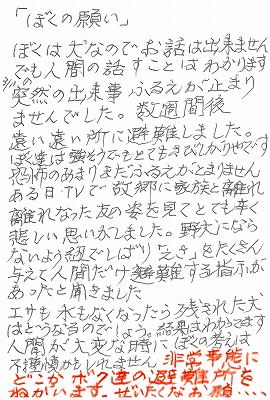 「ぼくの願い」
ぼくは犬なのでお話は出来ません
でも人間の話すことはわかります
3/11の
突然の出来事 ふるえが止まり
ませんでした。数週間後
遠い遠い所に避難しました。
ぼく達は強そうでもとてもきびしかやです
恐怖のあまりまだふるえがとまりません
ある日TVで故郷に家族と離れ
離れなった友の姿を見てとても辛く
悲しい思いがしました。野犬になら
ないよう紐でしばり「えさ」をたくさん
与えて人間だけ避難する指示が
あったと聞きました
エサも水もなくなったら残された犬
はどうなるのでしょう。結果はわかってます
人間が大変な時にぼくの考えは
不謹慎かもしれません 非常事態に
どこかボク達の避難所を
ねがいます。ぜいたくなお願・・・・